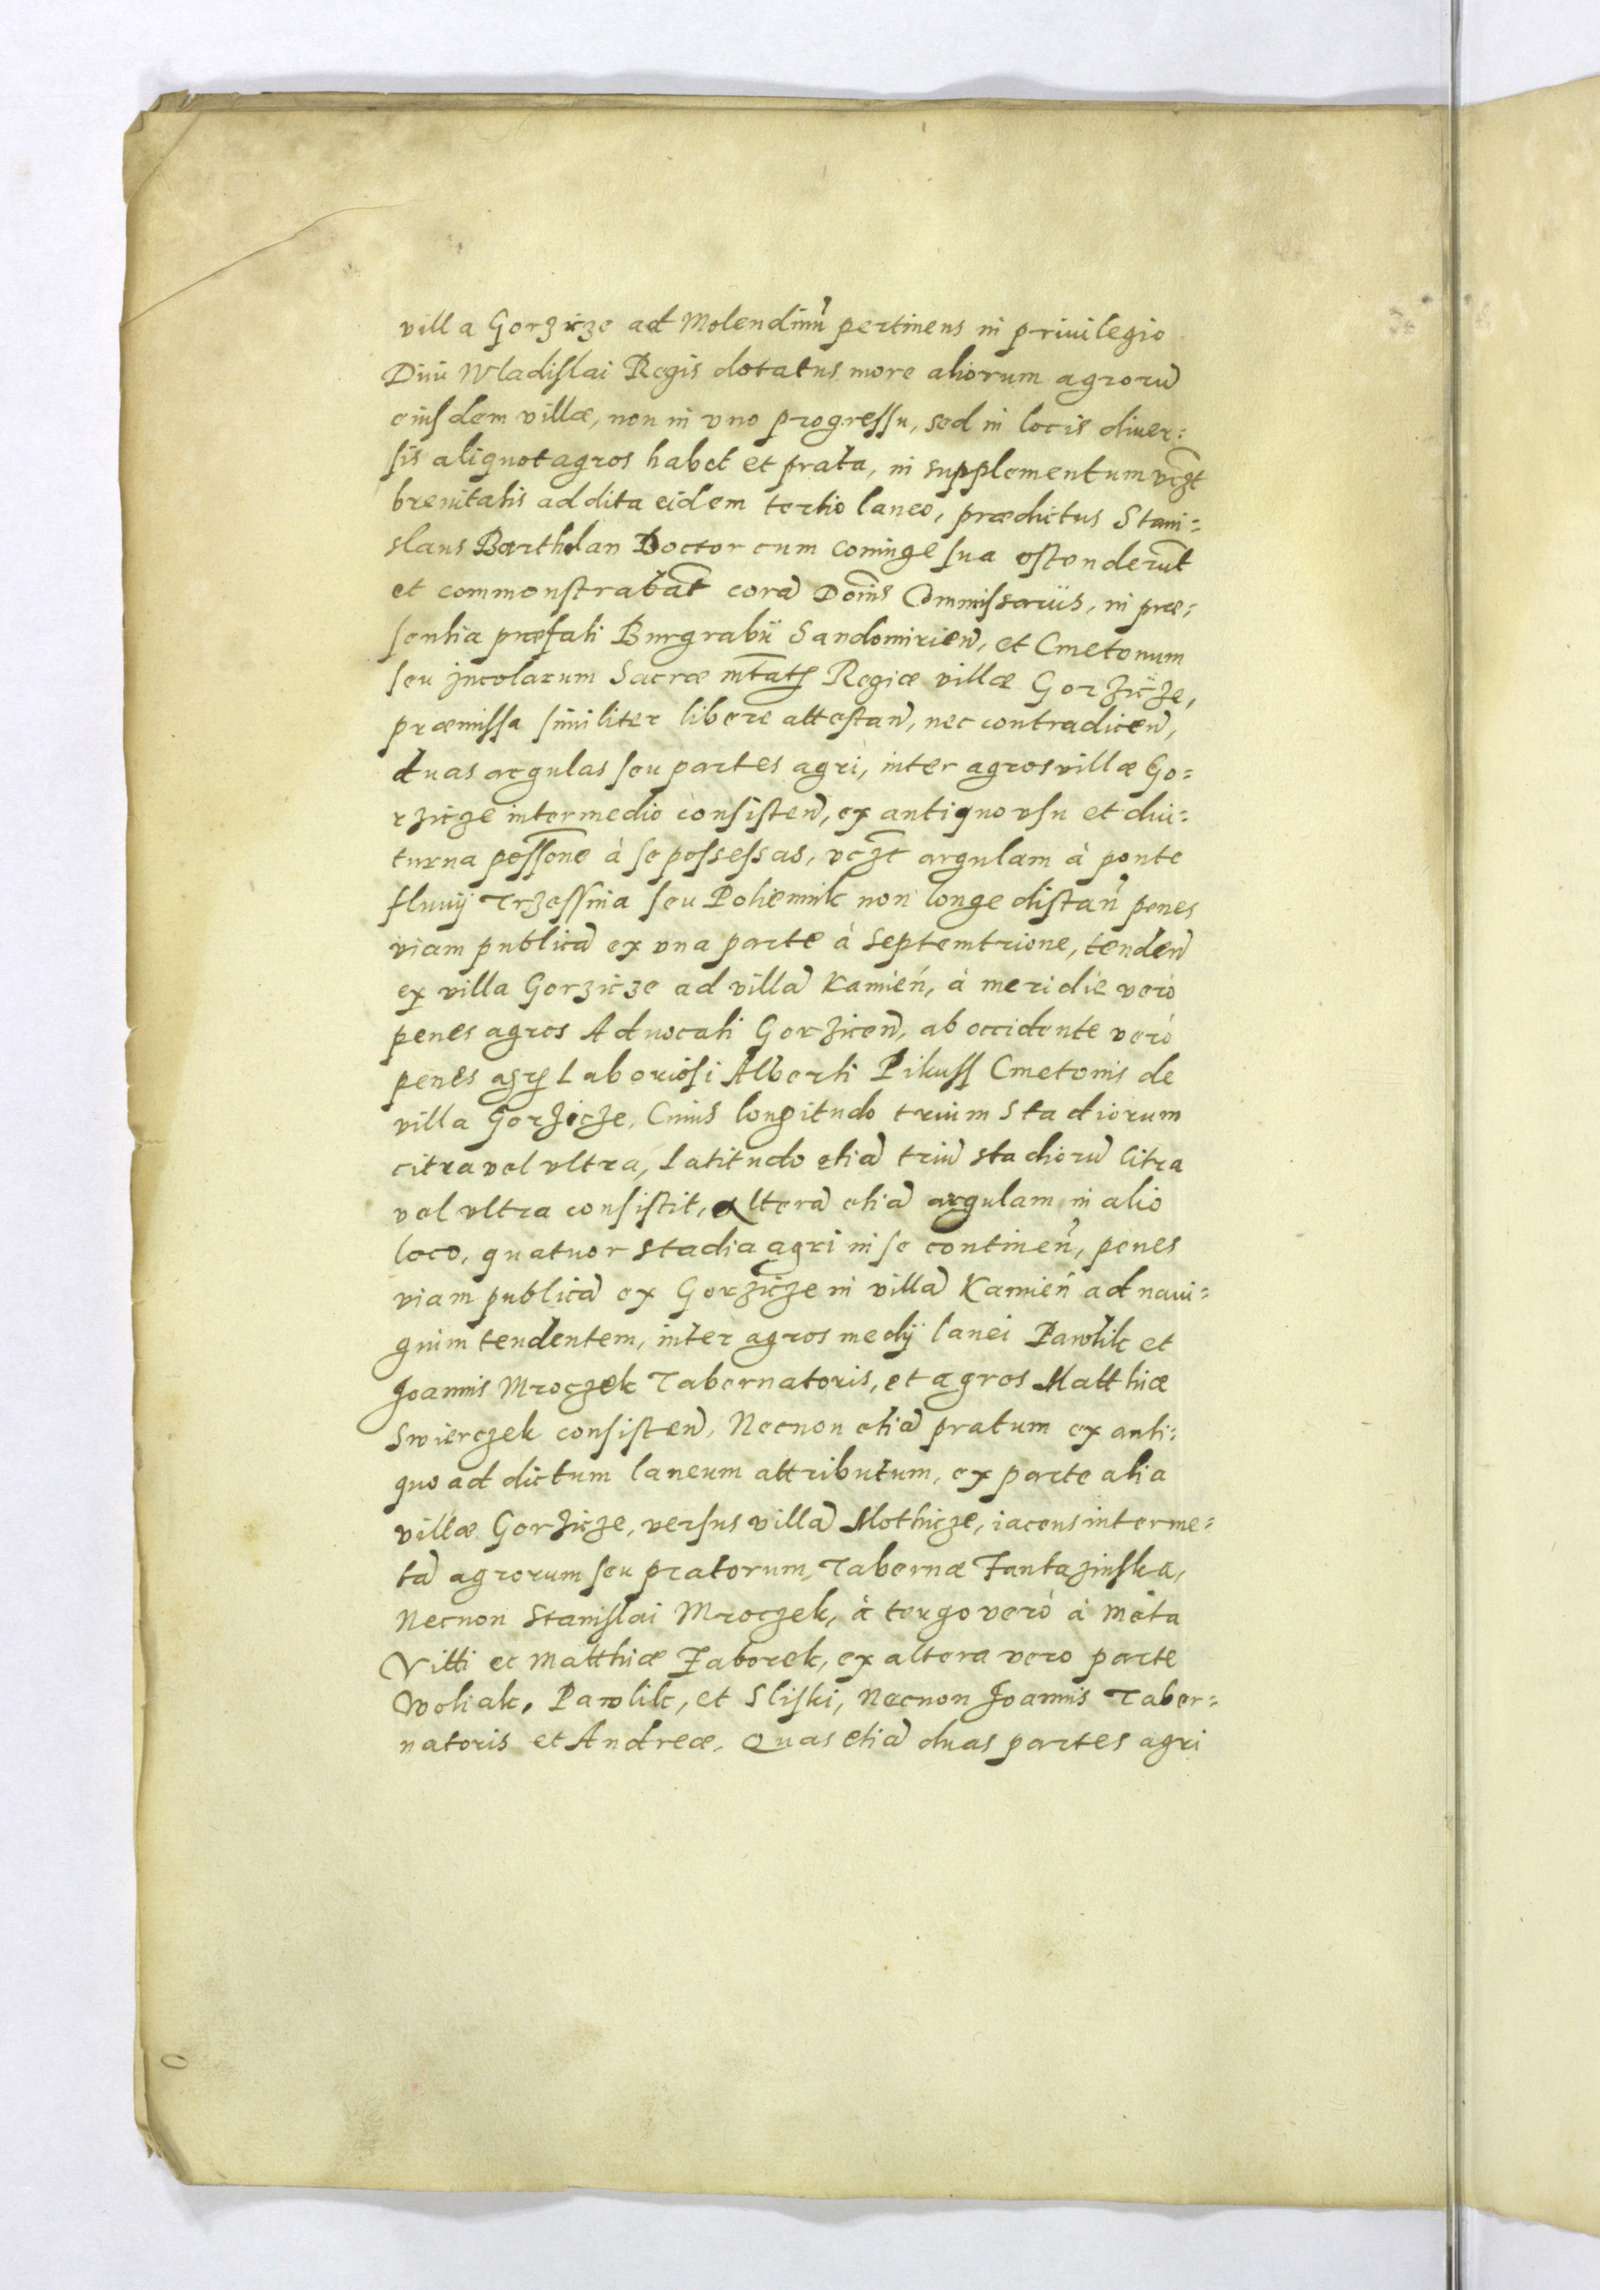 villa Gorzicze ad Molendinũ pertinens in priuilegio
Diui Wladislai Regis dotatus more aliorum agrorũ
eiusdem villæ, non in vno progressu, sed in locis diuer:
sis aliquot agros habet et prata, in supplementum vcȝt
breuitatis addita eidem tertio laneo, prædictus Stani:
slaus Barthelan Doctor cum coniuge sua ostenderũt
et commonstrabãt corã Doĩnis Commissariis, in præ:
sentia præfati Burgrabii Sandomirieñ, et Cmetonum
seu jncolarum Sacræ Mtatis Regiæ villæ Gorzicze,
præmissa similiter libere attestañ, nec contradiceñ,
duas argulas seu partes agri, inter agros villæ Go:
rzicze intermedio consisteñ, ex antiquo vsu et diu:
turna possone à se possessas, vcȝt argulam à ponte
fluuij Trzessnia seu Poliennik non longe distañ penes
viam publicã ex vna parte à Septemtrione, tendeñ
ex villa Gorzicze ad villã Kamień, à meridie verò
penes agros Aduocati Gorziceñ, ab occidente verò
penes agros Laboriosi Alberti Pikuss Cmetonis de
villa Gorzicze, Cuius longitudo trium Stadiorum
citra vel vltra, Latitudo etiã triũ stadiorũ Citra
vel vltra consistit, alterã etiã argulam in alio
loco, quatuor stadia agri in se continen̄, penes
viam publicã ex Gorzicze in villã Kamień ad naui:
guim tendentem, inter agros medij lanei Pawlik et
Joannis Mroczek Tabernatoris, et agros Matthiæ
Swierczek consisteñ, Necnon etiã pratum ex anti:
quo ad dictum laneum attributum, ex parte alia
villæ Gorzicze, versus villã Mothicze, iacens interme:
tã agrorum seu pratorum, Tabernæ Fantazinska,
Necnon Stanislai Mroczek, à tergo verò à meta
Vitti et Matthiæ Faborek, ex altera vero parte
Woliak, Pawlik, et Sliski, Necnon Joannis Taber:
natoris et Andreæ, Quas etiã duas partes agri